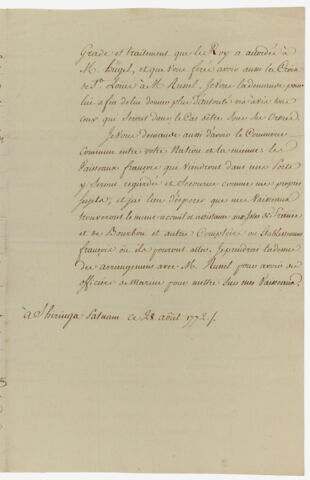 Grade et traitement que le Roy a accordée à
M. Hügel, et que vous feré avoir aussi la Croix
de St. Louis à M. Russel. Je vous la demande pour
lui afin de lui donner plus d'autorité vis a vis tous
ceux qui seront dans le Cas d'être sous ses Ordres.
Je vous demande aussi d'avoir le Commerce
Commun entre votre Nation et la mienne les
Vaisseaux français qui viendront dans mes Ports
y seront regardés et secourus comme mes propres
sujets, et j'ai lieu d'esperer que mes Vaisseaux
trouveront le meme accueil et assistance aux Isles de France
et de Bourbon et autre Comptoirs ou Etablissemens
français où ils pouront aller. Je prendrai la dessus
des arrangemens avec M. Russel pour avoir des
officiers de Marine pour mettre sur mes Vaisseaux.
à Sheringa Patnam ce 28. août 1772 ./.